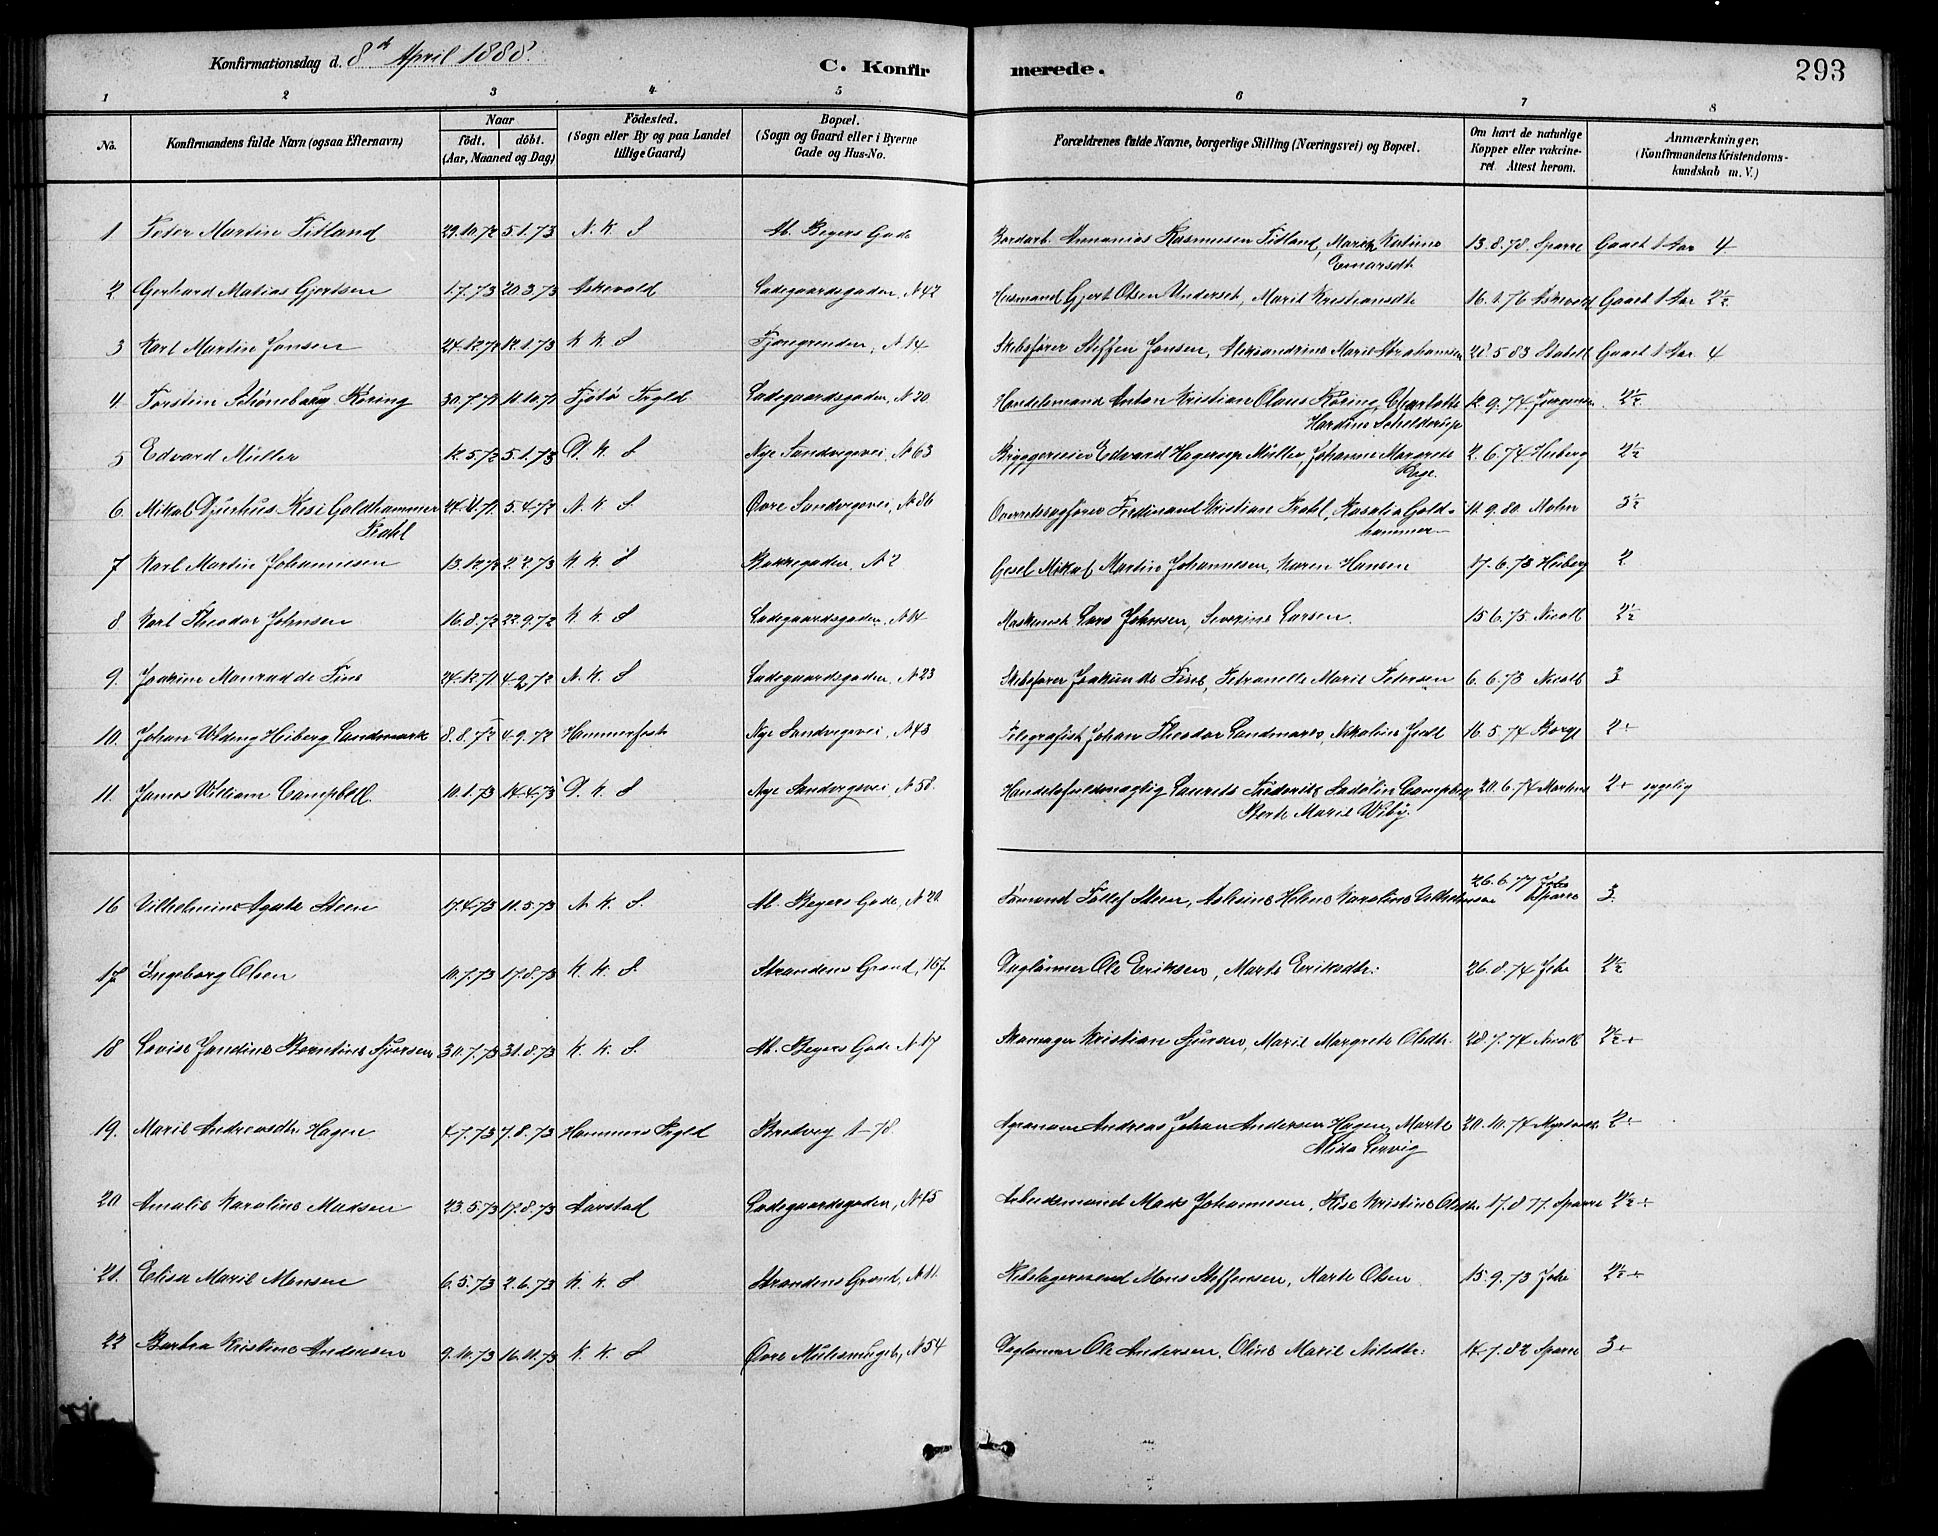 Konfirmationsdag d. 8de April 1888.
C. Konfirmerede.
293
1 2 3 4 5 6 7 8
No.
Konfirmandens fulde Navn (ogsaa Efternavn)
Naar
født. døbt.
(Aar, Maaned og Dag)
Fødested.
(Sogn eller By og paa Landet
tillige Gaard)
Bopæl.
(Sogn og Gaard eller i Byerne
Gade og Hus-No.
Forældrenes fulde Navne, borgerlige Stilling (Næringsvei) og Bopæl.
Om havt de naturlige
Kopper eller vakcine-
ret. Attest herom.
Anmærkninger.
(Konfirmandens Kristendoms-
kundskab m. V.)
1 Peter Martin Titland 29.10.72 5.1.73 N. K. S M. Beyers Gade Bordarb. Annanias Rasmusen Titland, Marie Katrine 13.8.78. Sparre Gaaet 1 Aar 4
Einarsdt.
2 Gerhard Matias Gjertsen 1.7.73 20.3.73 Askevold Ladegaardsgaden, N 42 Husmand Gjert Olsen Underset, Marit Kristiansdt 16.1.76 Askevold Gaaet 1 Aar 2½
3 Karl Martin Jansen 24.12.72 12.1.73 K K S N 14 Skibsfører Steffen Jansen, Aleksandrine Marie Abrahamsen 21.5.83 Gaaet 1 Aar 4
4 Torstein Schøneberg Roring 30.7.72 11.10.72 Fjøtø Prgld Ladegaardsgaden, N 20 Handelsmand Anton Kristian Olaus Roring, Charlotte 12.9.74 Jørgensen 2½
Hardine Schelderup
5 Edvard Müller 12.5.72 5.1.73 D. K. S Nye Sandvigsvei, N 63 Bryggereier Edvard Hagerup Müller, Johanne Margrete 2.6.74 Heiberg 2½
Rege.
6. Mikal Resi Goldhammer 24.11.71. 5.4.72 N. K. S. Øvre Sandvigsvei, N 86 Overretssagfører Ferdinand Kristian Prahl, Rosalia Gold- 11.9.80. Mohn 3½
Prahl hammer
7 Karl Martin Johannesen 13.12.72 2.2.73 K K S Bakkegaden, N 2 Gesel Mikal Martin Johannesen, Karen Hansen 17.6.73 Heiberg 2
8 Karl Theodor Johnsen 16.8.72 22.9.72 K K S Ladegaardsgaden, N 14 Maskinist Lars Johnsen, Severine Larsen. 15.6.75. Nicoll 2½
9. Joakim Monrad de Fine 24.12.71 4.2.72 N. K. S Ladegaardsgaden, N 23 Skibsfører Joakim de Fine, Petronelle Marie Petersen 6.6.73 Nicoll 3
10. Johan Welding Heiberg Landmark 8.8.72 4.9.72 Hammerfest Nye Sandvigsvei, N 43 Telegrafist Johan Theodor Landmark, Nikoline Juell 16.5.74 Borge 2+
11. James William Campbell 10.1.73 14.4.73 D. K S Nye Sandvigsvei, N 58. Handelsfuldmægtig Laurets Frederik Sadolin Campbell 20.6.74 Martens 2+ sygelig
Berte Marie Wiby.
16 Vilhelmine Agate Steen 17.4.73 11.5.73 N. K S. M. Beyers Gade, N 20. Sømand Tollef Steen, Askine Helene Karoline Vilhelmsen 26.6.77 Sparre 3.
17 Ingeborg Olsen 10.7.73 17.8.73 K. K. S. Strandens Grand, 167. Daglønner Ole Eriksen, Marte Eriksdtr. 26.8.74 2½
18 Lovise Jandine Berntine Sjursen 30.7.73 31.8.73 K. K. S. M. Beyers Gade N 17 Skomager Kristian Sjursen, Marie Margrete Olsdtr. 28.7.74 Nicoll 2½+
19. Marie Andreasdtr. Hagen 4.7.73 7.8.73 Hammers Prgld Bredvig 1-78. Agronom Andreas Johan Andersen Hagen, Marte 20.10.74 2+
Alida Lervig
20 Amalie Karoline Madsen 23.5.73 17.8.73 Aarstad Ladegaardsgaden, N 45 Arbeidsmand Mads Johannesen, Elise Kristine Olsdtr. 17.8.77. Sparre 2½+
21. Elisa Marie Monsen 6.5.73 2.6.73 K. K. S Strandens Grand, N 11. Mons Steffensen, Marte Olsen. 15.9.73 2½+
22 Barbra Kristine Andersen 9.10.73 16.11.73 K. K. S Øvre N 54 Daglønner Ole Andersen, Oline Marie Nilsdtr. 14.7.82 Sparre 3+